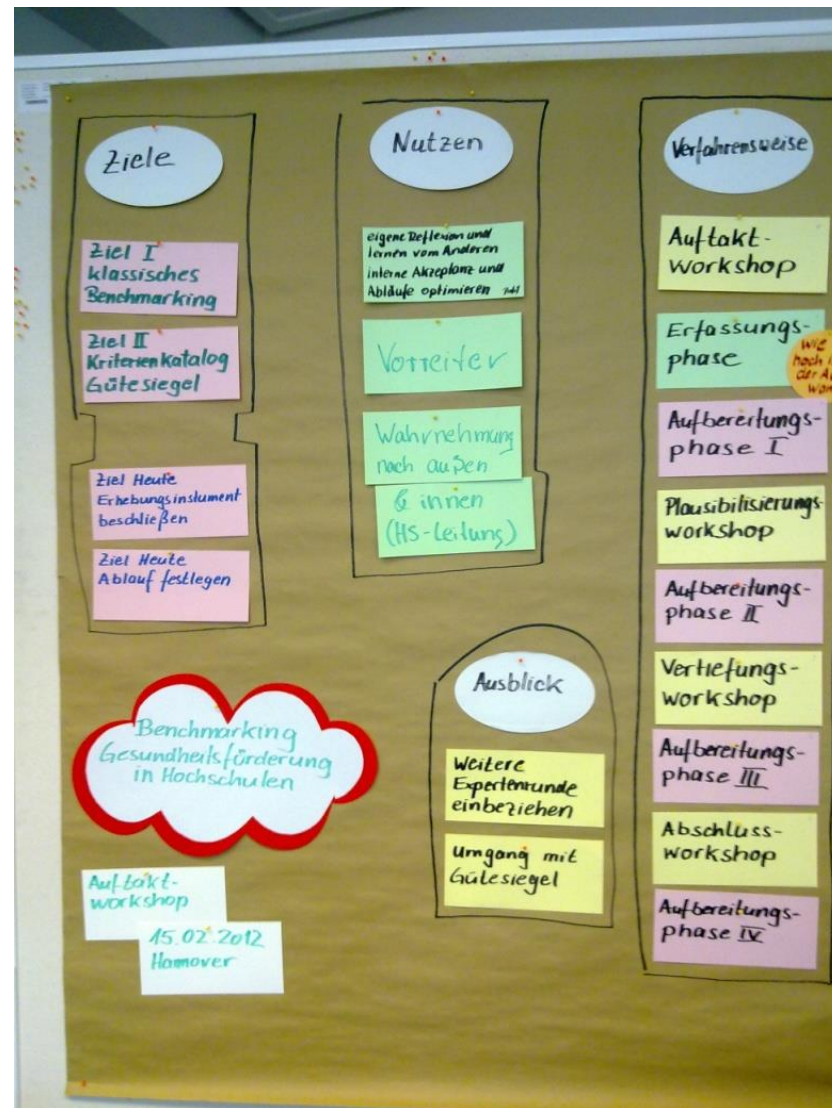 Ziele
Ziel I
klassisches
Benchmarking
Ziel II
Kriterienkatalog
Gütesiegel
Ziel Heute
Erhebungsinstument
beschließen
Ziel Heute
Ablauf festlegen
Benchmarking
Gesundheitsförderung
in Hochschulen
Auftakt-
workshop
15.02.2012
Hannover
Nutzen
eigene Reflexion und
lernen vom Anderen
interne Akzeptanz und
Abläufe optimieren
Vorreiter
Wahrnehmung
nach außen
& innen
(HS-Leitung)
Ausblick
Weitere
Expertenrunde
einbeziehen
Umgang mit
Gütesiegel
Verfahrensweise
Auftakt-
workshop
Erfassungs-
phase
Wie
hoch
der
Aufbereitungs-
phase I
Plausibilisierungs-
workshop
Aufbereitungs-
phase II
Vertiefungs-
workshop
Aufbereitungs-
phase III
Abschluss-
workshop
Aufbereitungs-
phase IV